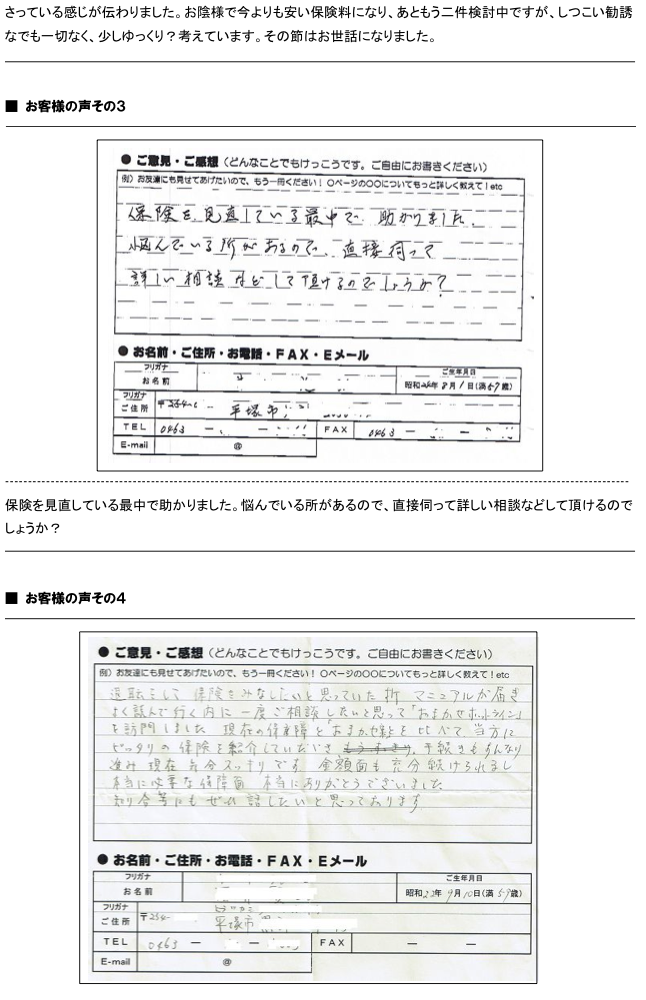 さっている感じが伝わりました。お陰様で今よりも安い保険料になり、あともう二件検討中ですが、しつこい勧誘
なでも一切なく、少しゆっくり？考えています。その節はお世話になりました。
■ お客様の声その３
● ご意見・ご感想（どんなことでもけっこうです。ご自由にお書きください）
例）お友達にも見せてあげたいので、もう一冊ください！ ○ページの○○についてもっと詳しく教えて！etc
保険を見直している最中で、助かりました、
悩んでいる所があるので、直接伺って
詳しい相談などして頂けるのでしょうか？
● お名前・ご住所・お電話・ＦＡＸ・Ｅメール
フリガナ ご生年月日
お名前 昭和 年8月1日(満57歳)
フリガナ
ご住所 〒254- 平塚市
ＴＥＬ 0463 － － ＦＡＸ 0463 － －
E-mail @
保険を見直している最中で助かりました。悩んでいる所があるので、直接伺って詳しい相談などして頂けるので
しょうか？
■ お客様の声その４
● ご意見・ご感想（どんなことでもけっこうです。ご自由にお書きください）
例）お友達にも見せてあげたいので、もう一冊ください！ ○ページの○○についてもっと詳しく教えて！etc
退職をして 保険をみなしたいと思っていた折 マニュアルが届き
よく読んで行く内に一度ご相談したいと思って「おまかせホットライン」
を訪問しました 現在の保障と を比べて、当方に
ピッタリの保険を紹介していただき 手続きもすんなり
進み現在気分スッキリです 金額面も充分続けられるし
本当に必要な保障面 本当にありがとうございました
知合等にもぜひ話したいと思っております
● お名前・ご住所・お電話・ＦＡＸ・Ｅメール
フリガナ ご生年月日
お名前 昭和23年9月10日(満59歳)
フリガナ
ご住所 〒254- 平塚市
ＴＥＬ 0463 － － ＦＡＸ － －
E-mail @